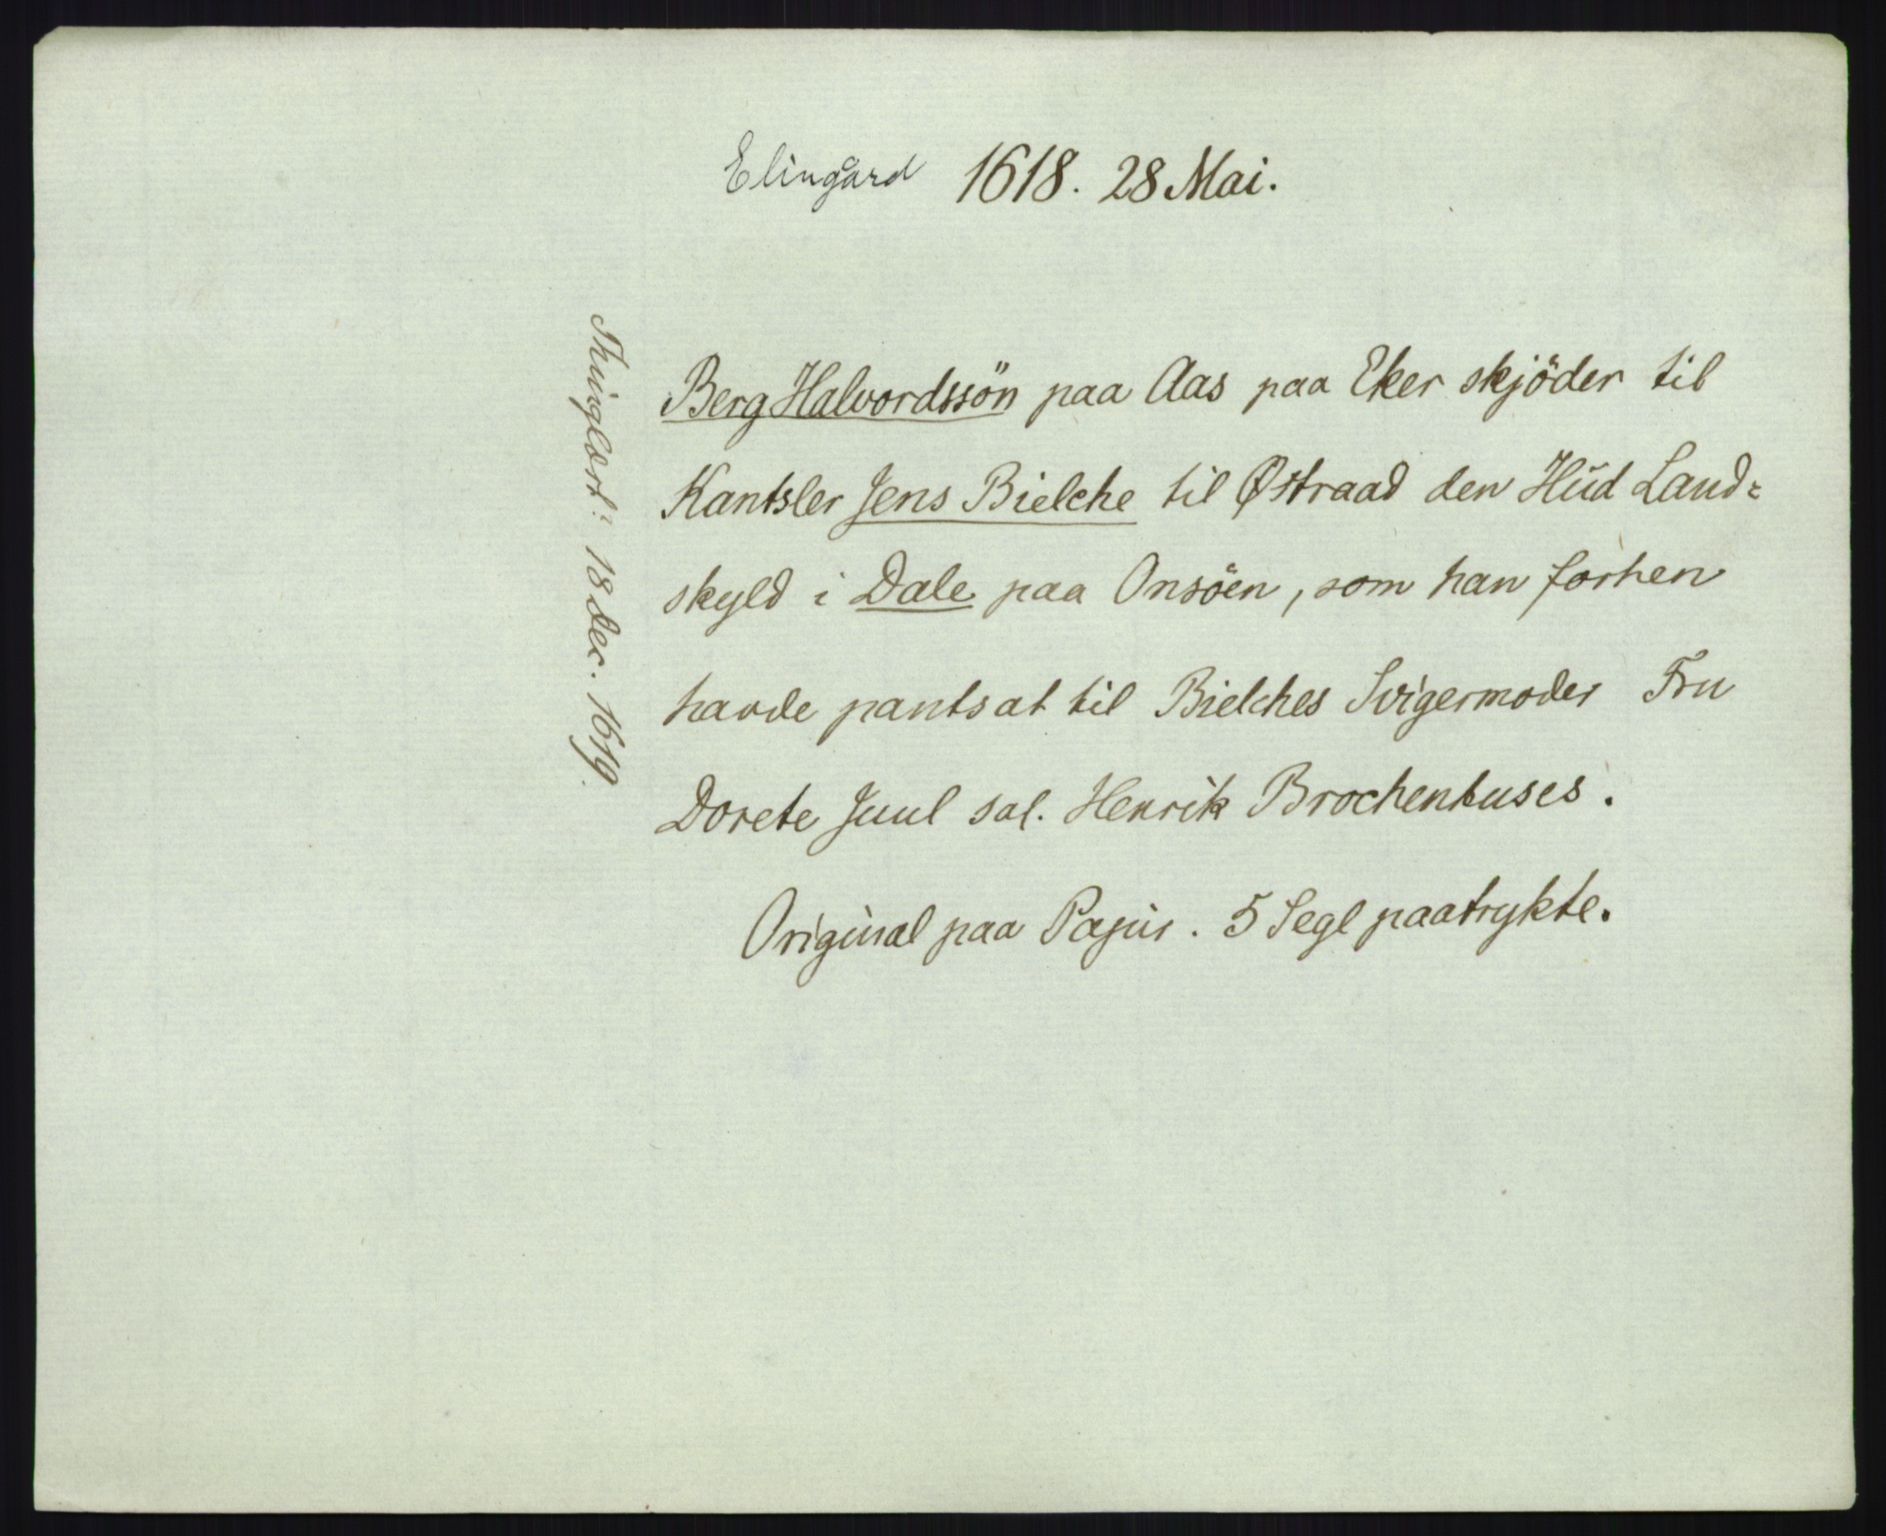 Elingård 1618. 28 Mai.
Berg Halvordssön paa Aas paa Eker skjöder til
Kantsler Jens Bielche til Østraad den Hud Land-
skyld i Dale paa Onsöen, som han forhen
havde pantsat til Bielches Svigermoder Fru
Dorete Juul sal. Henrik Brochenhuses.
Original paa Papir. 5 Segl paatrykte.
Thinglæst: 18 Dec. 1619.